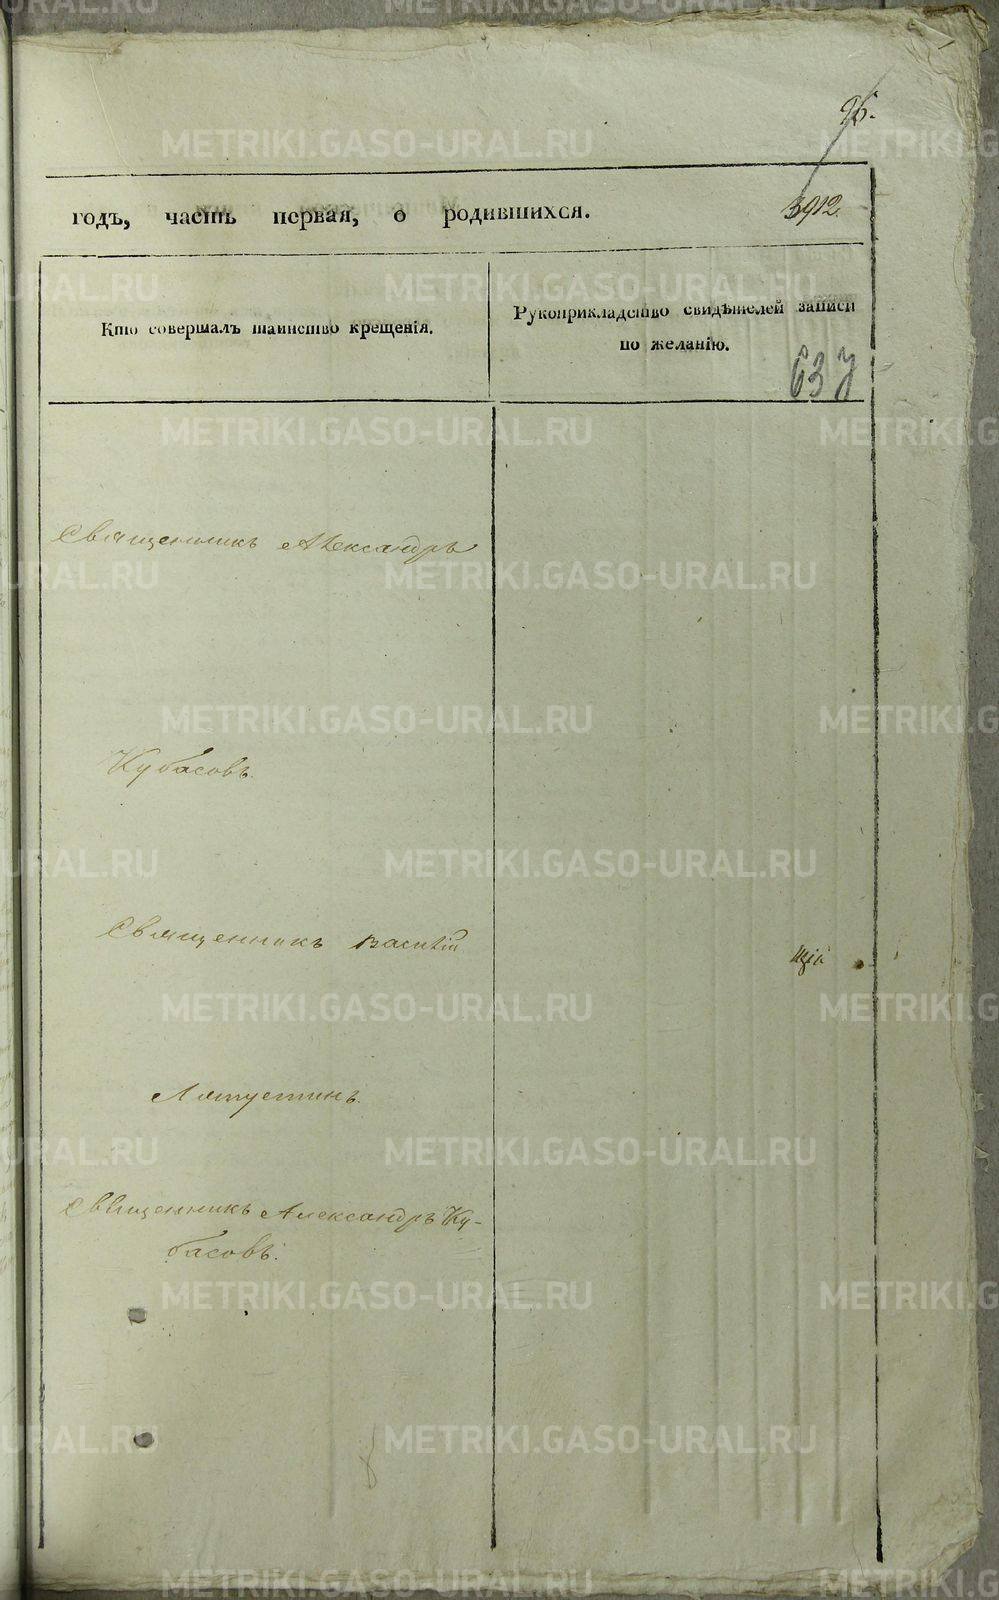 96.
годъ, часть первая, о родившихся.
3912.
Кто совершалъ таинство крещенія.
Рукоприкладство свидѣтелей записи
по желанію.
637
Священникъ Александръ
Кубасовъ.
Священникъ Василій
Ляпустинъ.
Священникъ Александръ Ку-
басовъ.
METRIKI.GASO-URAL.RU